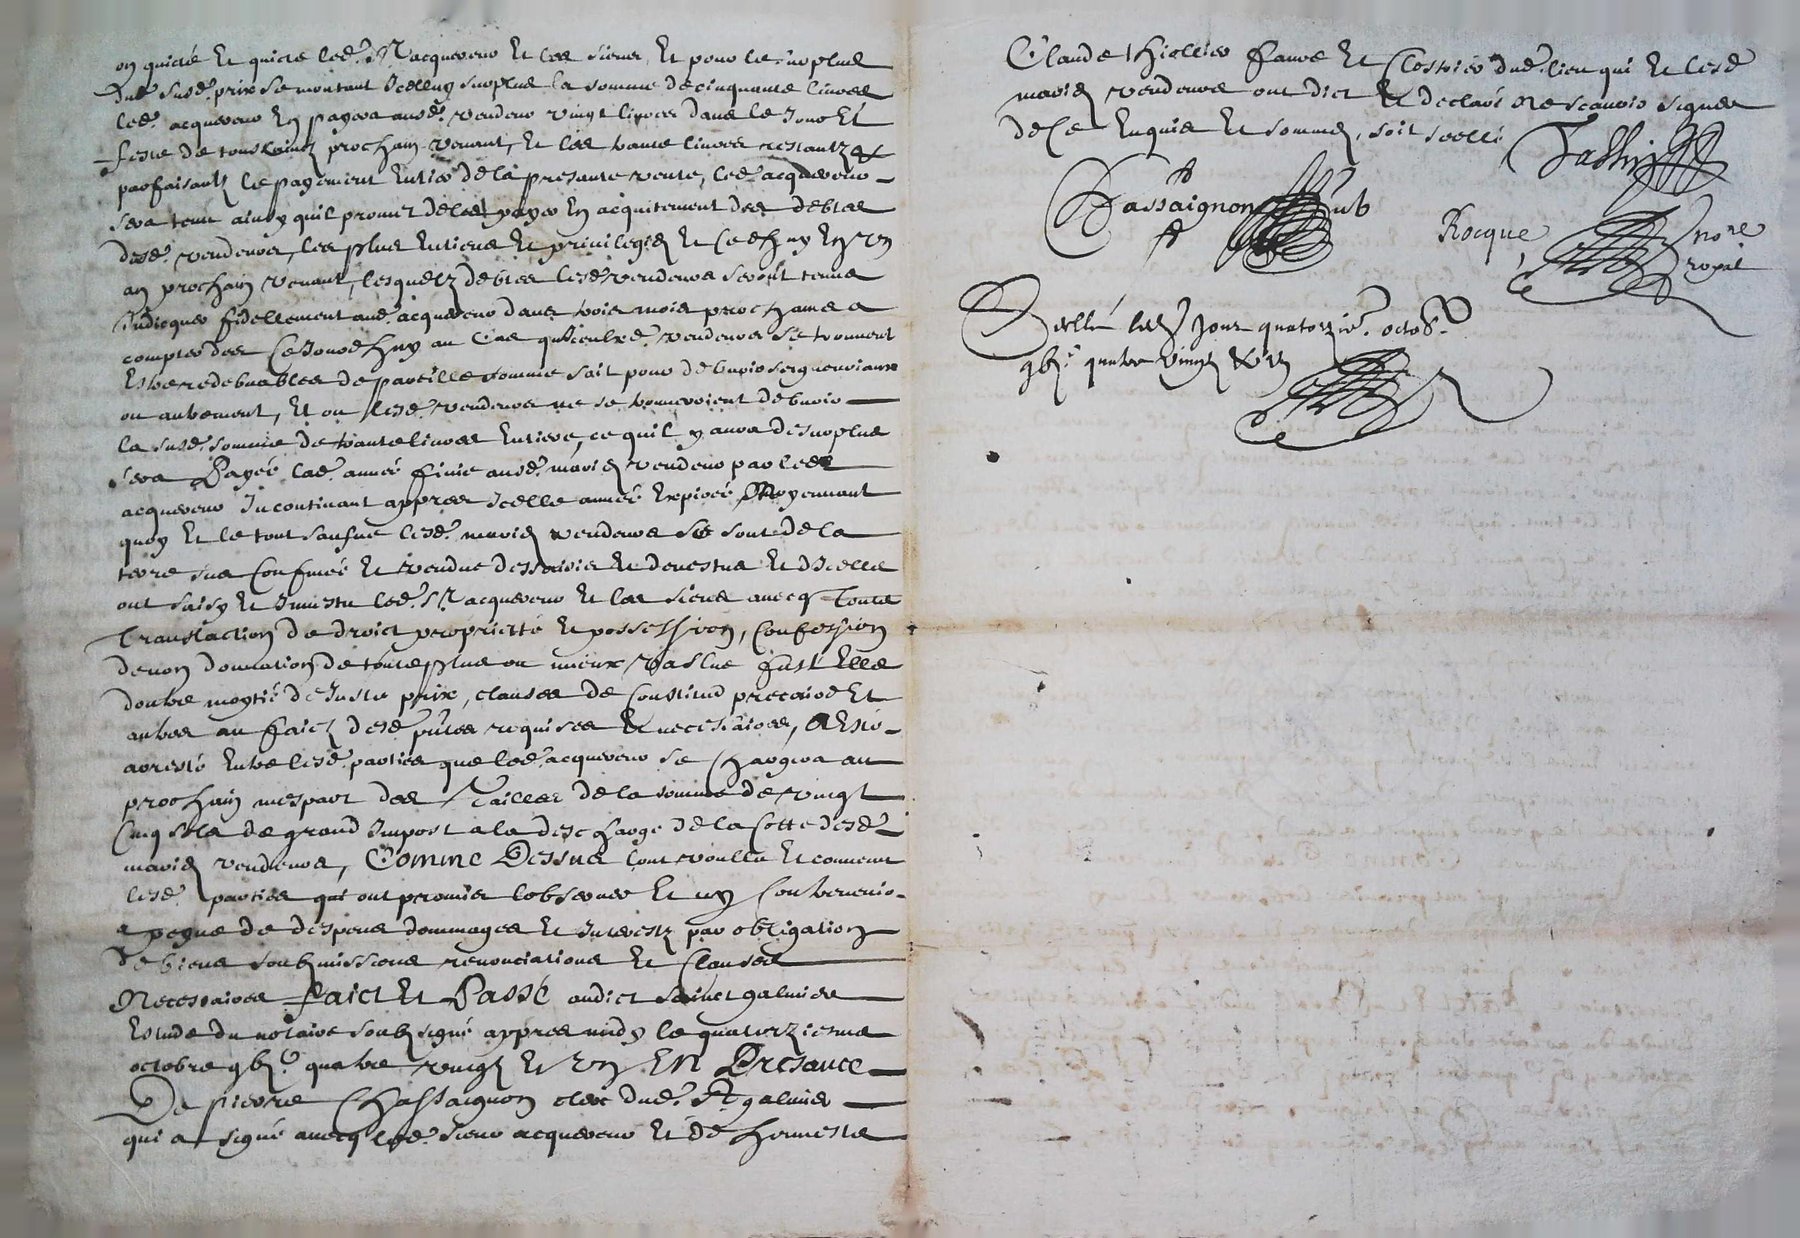 on quicté Et quicte led. Sr acquereur Et les siens, Et pour le surplus
dud. susd. prix se montant Icelluy surplus la somme de cinquante livres
led. acquereur En payera ausd. vendeurs vingt livres dans le Jour Et
feste de toussainctz prochain venant, Et les trante livres restantz Et
parfaisantz le payement Entier de la presante vente, led. acquereur
sera tenu ainsy quil promet de les payer En acquitement des debtes
desd. vendeurs, les plus Entiens Et privilegiés Et Cedhuy En Un
an prochain venant, lesquelz debtes lesd. vendeurs seront tenus
Indicquer fidellement aud. acquereur dans trois mois prochains a
compter des Cejourdhuy au Cas quIceulxd. vendeurs se trouvent
Estre redebvables de pareille somme soit pour debvoir seigneuriaux
ou autrement, Et ou lesd. vendeurs ne se trouveroient debvoir
la susd. somme de trante livres Entiere, ce quil y aura de surplus
sera Payée lad. année finie ausd. mariés vendeurs par led.
acquereur Incontinant appres Icelle année Expirée, Moyennant
quoy Et le tout sauf lesd. mariés vendeurs se sont de la
terre sus Confinée Et vendue dessaisis Et devestus Et dIcelle
ont saisy Et Investu led. Sr acquereur Et les siens avecq Toute
Translaction de droict proprietté Et possession, Confession
de non donnation de toutte plus ou mieux vallue fust Elle
doultre moytié de Juste prix, clauses de Constitud precaire Et
autres au faict desd. pntes requises Et necessaires, A Esté
arresté Entre lesd. parties que led. acquereur se Chargera au
prochain mespart des Tailles de la somme de vingt
Cinq solz de grand Impost a la descharge de la Cotte desd.
mariés vendeurs, Comme Dessus lont voullu Et convenu
lesd. parties qui ont promis lobserver Et ny Contrevenir
a peyne de despens dommages Et Interestz par obligation
de biens soubzmissions renonciations Et Clauses
Necessaires faict Et Passé audict Sainct galmier
Estude du notaire soubzsigné appres midy le quatorziesme
octobre gbjc quatre vingtz Et Un EN Presance
De pierre Chassaignon clerc dud. St galmier
qui a signé avecq led. sieur acquereur Et de honneste
Claude Thiollier faure Et Clostrier dud. lieu qui Et lesd.
mariés vendeurs ont dict Et declaré Ne scavoir signer
de Ce Enquis Et sommés, soit scellé
Chassaignon
Rocque no.re
royal
Scellé lesd. Jour quatorzie. octob.
gbjc quatre vingtz Et Un